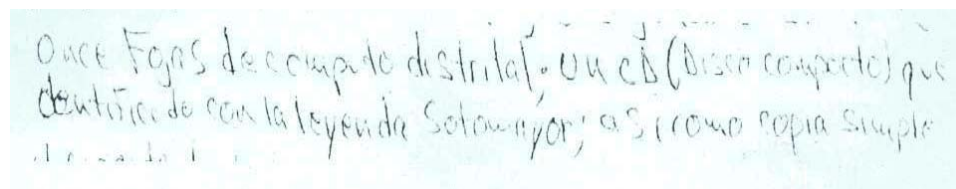 Once Fojas de computo distrital; un CD (Disco compacto) que
identificado con la leyenda Sotomayor; así como copia simple